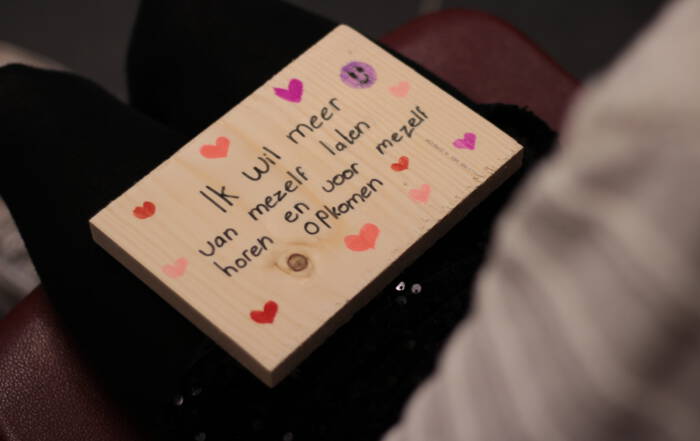 Ik wil meer
van mezelf laten
horen en voor mezelf
opkomen